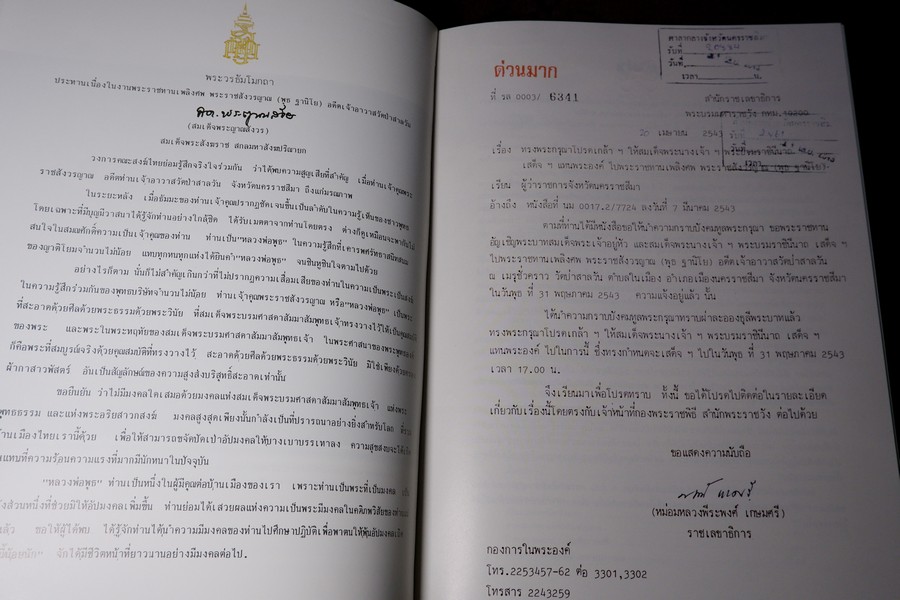 พระวรธัมโมกถา
ประทานเนื่องในงานพระราชทานเพลิงศพ พระราชสังวรญาณ (พุธ ฐานิโย) อดีตเจ้าอาวาสวัดป่าสาลวัน
(สมเด็จพระญาณสังวร)
สมเด็จพระสังฆราช สกลมหาสังฆปริณายก
วงการคณะสงฆ์ไทยย่อมรู้สึกจริงใจร่วมกัน ว่าได้พบความสูญเสียที่สำคัญ เมื่อท่านเจ้าคุณพระ
ราชสังวรญาณ อดีตเจ้าอาวาสวัดป่าสาลวัน จังหวัดนครราชสีมา ถึงแก่มรณภาพ
ในระยะหลัง เมื่อธัมมะของท่านเจ้าคุณปรากฏชัดเจนขึ้นเป็นลำดับในความรู้เห็นของชาวพุทธ
โดยเฉพาะที่มีบุญมีวาสนาได้รู้จักท่านอย่างใกล้ชิด ได้รับเมตตาจากท่านโดยตรง ต่างก็ดูเหมือนจะพากัน
สนใจในสมณศักดิ์ความเป็นเจ้าคุณของท่าน ท่านเป็น"หลวงพ่อพุธ" ในความรู้สึกที่เคารพศรัทธาสนิทสนม
ของญาติโยมจำนวนไม่น้อย แทบทุกคนทุกแห่งได้ยินคำ"หลวงพ่อพุธ" จนชินหูชินใจตามไปด้วย
อย่างไรก็ตาม นั่นก็ไม่สำคัญเกินกว่าที่ไม่ปรากฏความเสื่อมเสียของท่านในความเป็นพระเป็นสงฆ์
ในความรู้สึกร่วมกันของพุทธบริษัทจำนวนไม่น้อย ท่านเจ้าคุณพระราชสังวรญาณ หรือ"หลวงพ่อพุธ" เป็นพระ
ที่สะอาดด้วยศีลด้วยพระธรรมด้วยพระวินัย ที่สมเด็จพระบรมศาสดาสัมมาสัมพุทธเจ้าทรงวางไว้ให้เป็นคุณสมบัติ
ของพระ และพระในพระหฤทัยของสมเด็จพระบรมศาสดาสัมมาสัมพุทธเจ้า ในพระศาสนาของพระพุทธองค์
ก็คือพระที่สมบูรณ์จริงด้วยคุณสมบัติที่ทรงวางไว้ สะอาดด้วยศีลด้วยพระธรรมด้วยพระวินัย มิใช่เพียงด้วย
ผ้ากาสาวพัสตร์ อันเป็นสัญลักษณ์ของความสูงส่งบริสุทธิ์สะอาดเท่านั้น
ขอยืนยัน ว่าไม่มีมงคลใดเสมอด้วยมงคลแห่งสมเด็จพระบรมศาสดาสัมมาสัมพุทธเจ้า แห่งพระ
พุทธธรรม และแห่งพระอริยสาวกสงฆ์ มงคลสูงสุดเพียงนั้นกำลังเป็นที่ปรารถนาอย่างยิ่งสำหรับโลก
บ้านเมืองไทยเรานี้ด้วย เพื่อให้สามารถขจัดปัดเป่าอัปมงคลให้บางเบาบรรเทาลง ความสุขสงบจะได้
แทนที่ความร้อนความแรงที่มากมีนักหนาในปัจจุบัน
"หลวงพ่อพุธ" ท่านเป็นหนึ่งในผู้มีคุณต่อบ้านเมืองของเรา เพราะท่านเป็นพระที่เป็นมงคล
ส่วนหนึ่งที่ช่วยมิให้อัปมงคลเพิ่มขึ้น ท่านย่อมได้เสวยผลแห่งความเป็นพระมีมงคลในคติภพวิสัยของท่าน
แล้ว ขอให้ผู้ได้พบ ได้รู้จักท่านได้นำความมีมงคลของท่านไปศึกษาปฏิบัติเพื่อพาตนให้พ้นอัปมงคล
จักได้มีชีวิตหน้าที่ยาวนานอย่างมีมงคลต่อไป.
ด่วนมาก
ศาลากลางจังหวัดนครราชสีมา
รับที่
วันที่
เวลา น.
ที่ รล 0003/ 6341
สำนักราชเลขาธิการ
พระบรมมหาราชวัง กทม.
20 เมษายน 2543
เรื่อง ทรงพระกรุณาโปรดเกล้า ฯ ให้สมเด็จพระนางเจ้า ฯ พระบรมราชินีนาถ
เสด็จ ฯ แทนพระองค์ ไปพระราชทานเพลิงศพ พระราชสังวรญาณ (พุธ ฐานิโย)
เรียน ผู้ว่าราชการจังหวัดนครราชสีมา
อ้างถึง หนังสือที่ นม 0017.2/7724 ลงวันที่ 7 มีนาคม 2543
ตามที่ท่านได้มีหนังสือขอให้นำความกราบบังคมทูลพระกรุณา ขอพระราชทาน
อัญเชิญพระบาทสมเด็จพระเจ้าอยู่หัว และสมเด็จพระนางเจ้า ฯ พระบรมราชินีนาถ เสด็จ ฯ
ไปพระราชทานเพลิงศพ พระราชสังวรญาณ (พุธ ฐานิโย) อดีตเจ้าอาวาสวัดป่าสาลวัน
ณ เมรุชั่วคราว วัดป่าสาลวัน ตำบลในเมือง อำเภอเมืองนครราชสีมา จังหวัดนครราชสีมา
ในวันพุธ ที่ 31 พฤษภาคม 2543 ความแจ้งอยู่แล้ว นั้น
ได้นำความกราบบังคมทูลพระกรุณาทราบฝ่าละอองธุลีพระบาทแล้ว
ทรงพระกรุณาโปรดเกล้า ฯ ให้สมเด็จพระนางเจ้า ฯ พระบรมราชินีนาถ เสด็จ ฯ
แทนพระองค์ ไปในการนี้ ซึ่งทรงกำหนดจะเสด็จ ฯ ไปในวันพุธ ที่ 31 พฤษภาคม 2543
เวลา 17.00 น.
จึงเรียนมาเพื่อโปรดทราบ ทั้งนี้ ขอได้โปรดไปติดต่อในรายละเอียด
เกี่ยวกับเรื่องนี้โดยตรงกับเจ้าหน้าที่กองพระราชพิธี สำนักพระราชวัง ต่อไปด้วย
ขอแสดงความนับถือ
(หม่อมหลวงพีระพงศ์ เกษมศรี)
ราชเลขาธิการ
กองการในพระองค์
โทร.2253457-62 ต่อ 3301,3302
โทรสาร 2243259